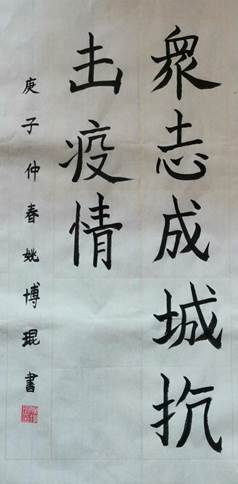 衆志成城抗
击疫情
庚子仲春姚博琨書